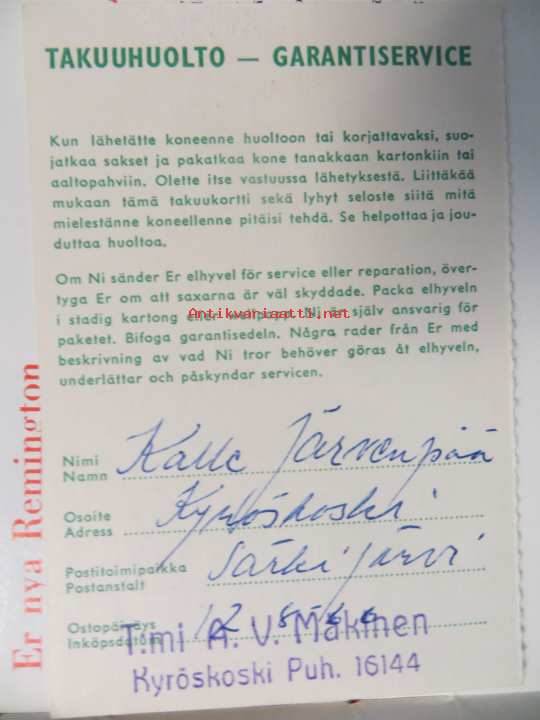 TAKUUHUOLTO — GARANTISERVICE
Kun lähetätte koneenne huoltoon tai korjattavaksi, suo-
jatkaa sakset ja pakatkaa kone tanakkaan kartonkiin tai
aaltopahviin. Olette itse vastuussa lähetyksestä. Liittäkää
mukaan tämä takuukortti sekä lyhyt seloste siitä mitä
mielestänne koneellenne pitäisi tehdä. Se helpottaa ja jou-
duttaa huoltoa.
Om Ni sänder Er elhyvel för service eller reparation, över-
tyga Er om att saxarna är väl skyddade. Packa elhyveln
i stadig kartong eller wellpapp. Ni är själv ansvarig för
paketet. Bifoga garantisedeln. Några rader från Er med
beskrivning av vad Ni tror behöver göras åt elhyveln,
underlättar och påskyndar servicen.
Antikvariaatti.net
Nimi Kalle Järvenpää
Namn
Osoite Kyröskoski
Adress
Postitoimipaikka Särkijärvi
Postanstalt
Ostopäiväys 12
Inköpsdatum
T:mi A. V. Mäkinen
Kyröskoski Puh. 16144
Er nya Remington